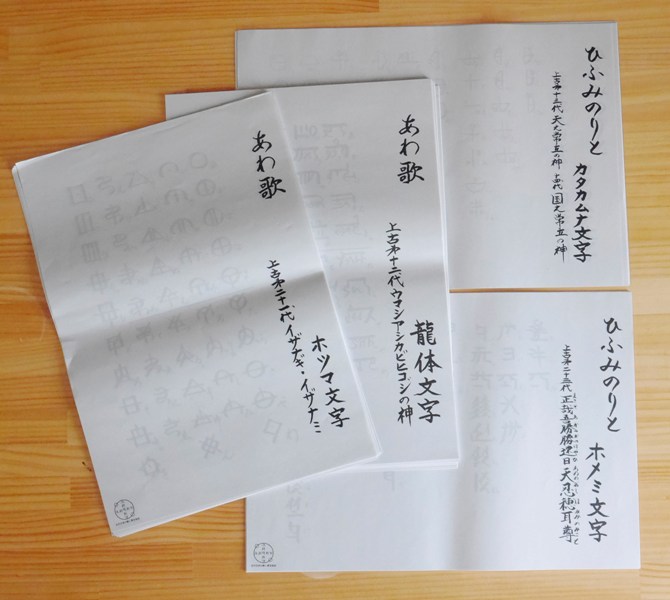 あわ歌
ホツマ文字
上古第二十一代 イザナギ・イザナミ
あわ歌
龍体文字
上古第十二代ウマシアーシカビヒコジの神
ひふみのりと
カタカムナ文字
上古第十三代 天之常立の神 国之常立の神
ひふみのりと
ホメミ文字
上古第二十五代 正哉吾勝勝速日天忍穂耳尊